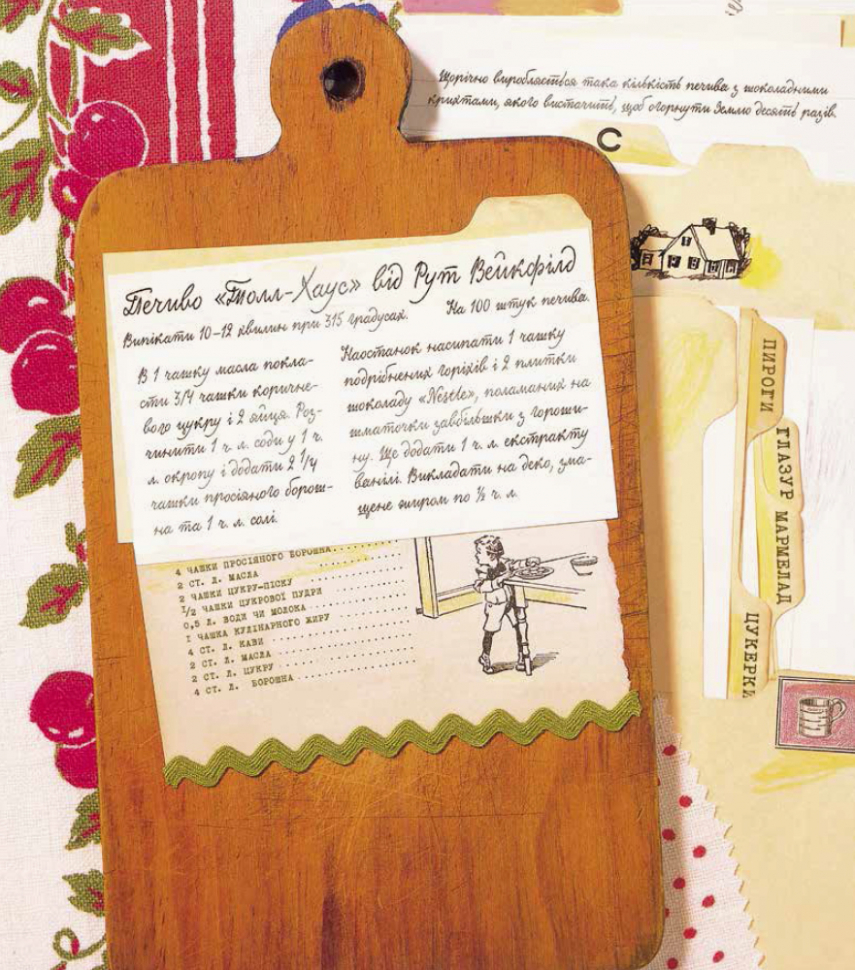 Щорічно виробляється така кількість печива з шоколадними
крихтами, якого вистачить, щоб огорнути Землю десять разів.
С
Печиво «Толл-Хаус» від Рут Вейкфілд
Випікати 10-12 хвилин при 375 градусах.
На 100 штук печива.
В 1 чашку масла покла-
сти 3/4 чашки коричне-
вого цукру і 2 яйця. Роз-
чинити 1 ч. л. соди у 1 ч.
л. окропу і додати 2 1/4
чашки просіяного борош-
на та 1 ч. л. солі.
Наостанок насипати 1 чашку
подрібнених горіхів і 2 плитки
шоколаду «Nestle», поламаних на
шматочки завбільшки з гороши-
ну. Ще додати 1 ч. л. екстракту
ванілі. Викладати на деко, зма-
щене жиром по ½ ч. л.
4 ЧАШКИ ПРОСІЯНОГО БОРОШНА
2 СТ. Л. МАСЛА
2 ЧАШКИ ЦУКРУ-ПІСКУ
I/2 ЧАШКИ ЦУКРОВОЇ ПУДРИ
0,5 Л. ВОДИ ЧИ МОЛОКА
I ЧАШКА КУЛІНАРНОГО ЖИРУ
4 СТ. Л. КАВИ
2 СТ. Л. МАСЛА
2 СТ. Л. ЦУКРУ
4 СТ. Л. БОРОШНА
ПИРОГИ
ГЛАЗУР МАРМЕЛАД
ЦУКЕРКИ